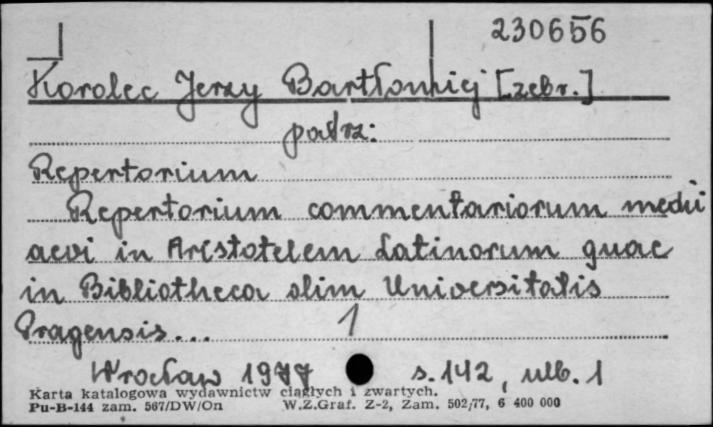 230656
Korolec Jerzy Bartłomiej [zebr.]
patrz:
Repertorium
Repertorium commentariorum medii
aevi in Aristotelem Latinorum quae
in Bibliotheca olim Universitatis
Pragensis...
1
Wrocław 1977 s. 142, nlb. 1
Karta katalogowa wydawnictw ciągłych i zwartych.
Pu-B-144 zam. 567/DW/On W.Z.Graf. Z-2, Zam. 502/77, 6 400 000